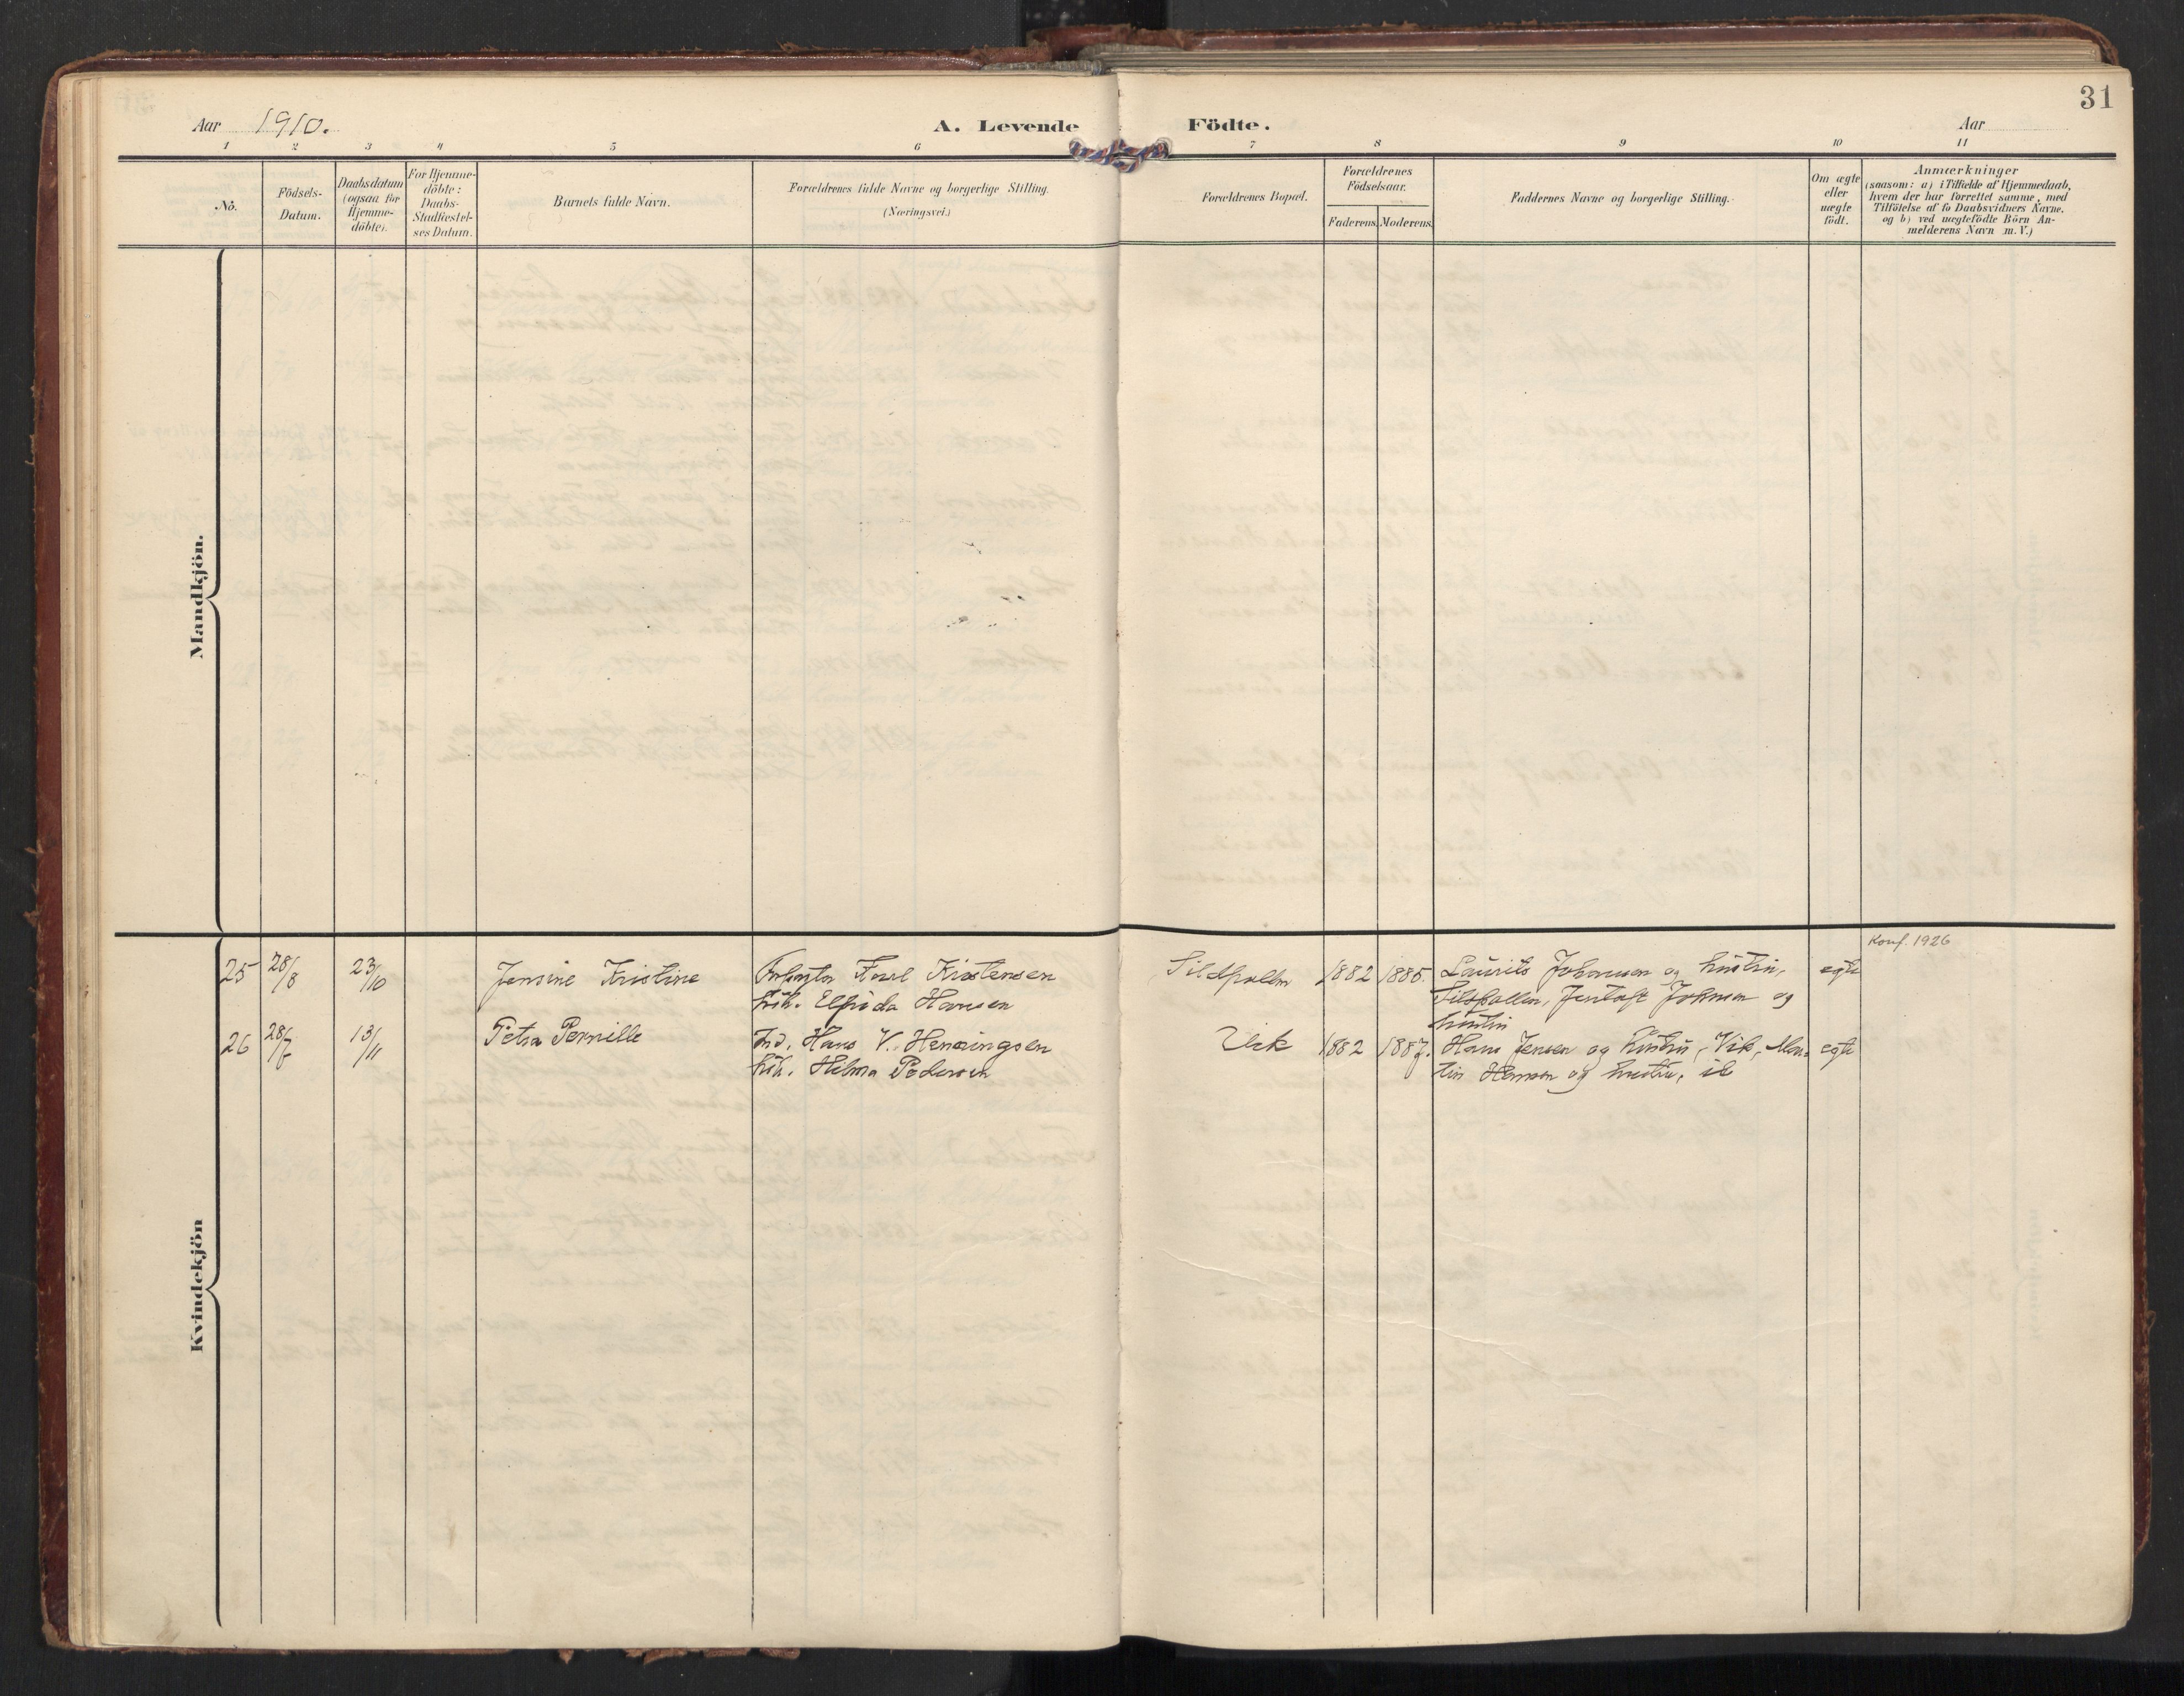 31
Aar 1910.
A. Levende Födte.
Aar
1 2 3 4 5 6 7 8 9 10 11
No.
Födsels-
Datum.
Daabsdatum
(ogsaa for
Hjemme-
döbte).
For Hjemme-
döbte:
Daabs-
Stadfæstel-
ses Datum.
Barnets fulde Navn.
Forældrenes fulde Navne og borgerlige Stilling.
(Næringsvei.)
Forældrenes Bopæl.
Forældrenes
Födselsaar.
Faderens. Moderens.
Faddernes Navne og borgerlige Stilling.
Om ægte
eller
uægte
født.
Anmærkninger
(saasom: a) i Tilfælde af Hjemmedaab,
hvem der har forrettet samme, med
Tilföielse af to Daabsvidners Navne,
og b) ved uægtefödte Börn An-
melderens Navn m. V.)
Mandkjön.
Kvindekjön
Konf. 1926
25 28/8 23/10 Jensine Kristine
Karl Kristensen
hüh. Elfrida Hansen
1882 1885.
Laurits Johansen og hustru,
Sildpollen, Jentoft Johnsen og
hustru
egte
26 13/11 Petra Pernille
Ind. Hans V. Henningsen
hüh. Hilma Pedersen
Vik
1882 1887.
Hans Jensen og hustru, Vik, Mar-
tin Hansen og hustru, ib
egte